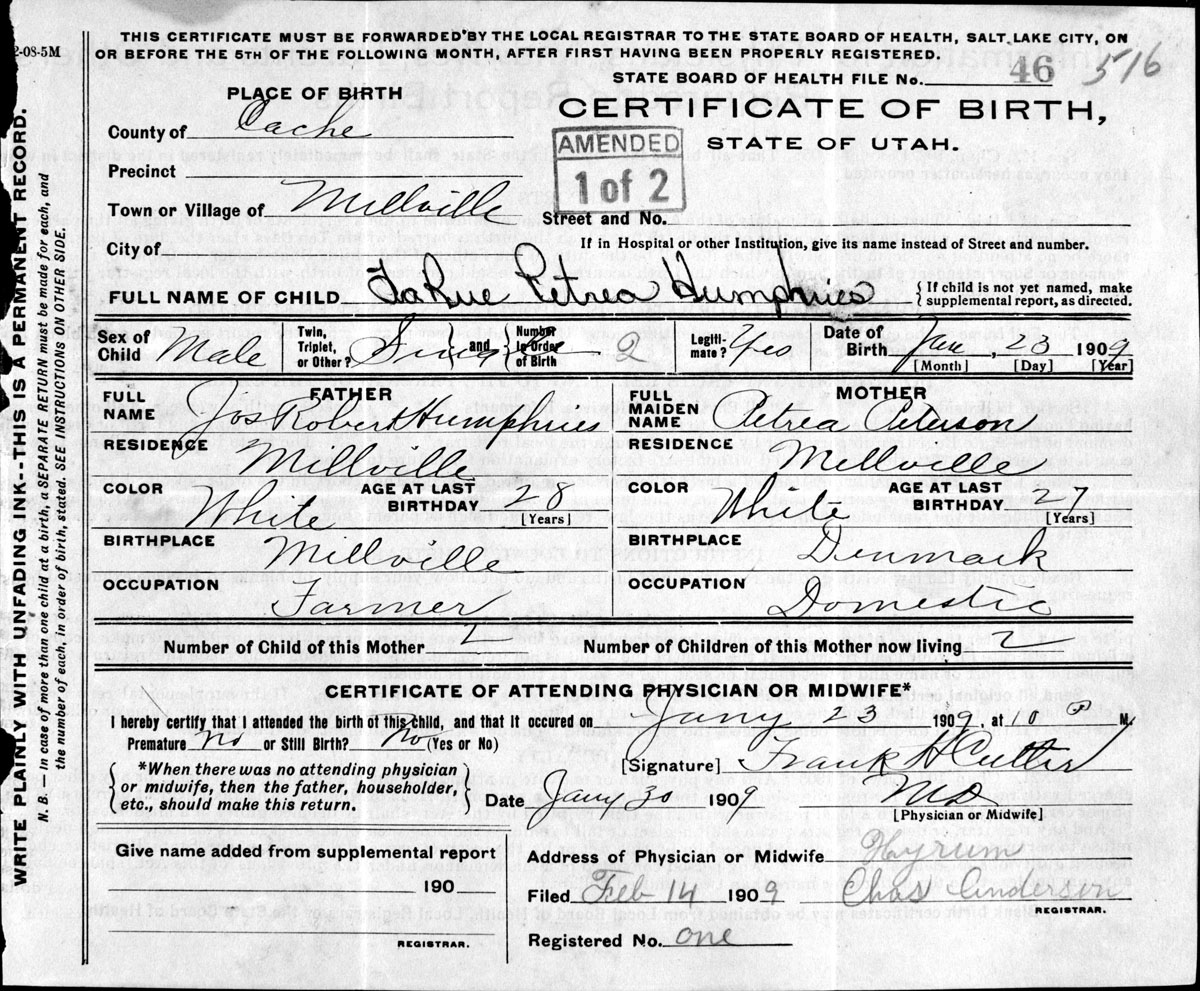 2-08-5M
THIS CERTIFICATE MUST BE FORWARDED BY THE LOCAL REGISTRAR TO THE STATE BOARD OF HEALTH, SALT LAKE CITY, ON
OR BEFORE THE 5TH OF THE FOLLOWING MONTH, AFTER FIRST HAVING BEEN PROPERLY REGISTERED.
STATE BOARD OF HEALTH FILE No. 46 516
PLACE OF BIRTH
CERTIFICATE OF BIRTH,
STATE OF UTAH.
AMENDED
1 of 2
County of Cache
Precinct
Town or Village of Millville
Street and No.
City of
If in Hospital or other Institution, give its name instead of Street and number.
FULL NAME OF CHILD LaRue Petrea Humphries { If child is not yet named, make
supplemental report, as directed.
Sex of Child Male Twin, Triplet, or Other? Single } and { Number In Order of Birth 2 Legiti- mate? Yes Date of Birth Jan, 23 1909
[Month] [Day] [Year]
FATHER
FULL NAME Jos Robert Humphries
RESIDENCE Millville
COLOR White AGE AT LAST BIRTHDAY 28 [Years]
BIRTHPLACE Millville
OCCUPATION Farmer
MOTHER
FULL MAIDEN NAME Petrea Peterson
RESIDENCE Millville
COLOR White AGE AT LAST BIRTHDAY 27 [Years]
BIRTHPLACE Denmark
OCCUPATION Domestic
Number of Child of this Mother 2 Number of Children of this Mother now living 2
CERTIFICATE OF ATTENDING PHYSICIAN OR MIDWIFE*
I hereby certify that I attended the birth of this child, and that it occured on Jany 23 1909, at 10 P M.
Premature no or Still Birth? No (Yes or No)
[Signature] Frank H Cutler
{ *When there was no attending physician
or midwife, then the father, householder,
etc., should make this return. }
Date Jany 30 1909
MD
[Physician or Midwife]
Give name added from supplemental report
190
REGISTRAR.
Address of Physician or Midwife Hyrum
Filed Feb 14 1909 Chas Anderson
REGISTRAR.
Registered No. one
WRITE PLAINLY WITH UNFADING INK--THIS IS A PERMANENT RECORD.
N. B.— In case of more than one child at a birth, a SEPARATE RETURN must be made for each, and
the number of each, in order of birth, stated. SEE INSTRUCTIONS ON OTHER SIDE.